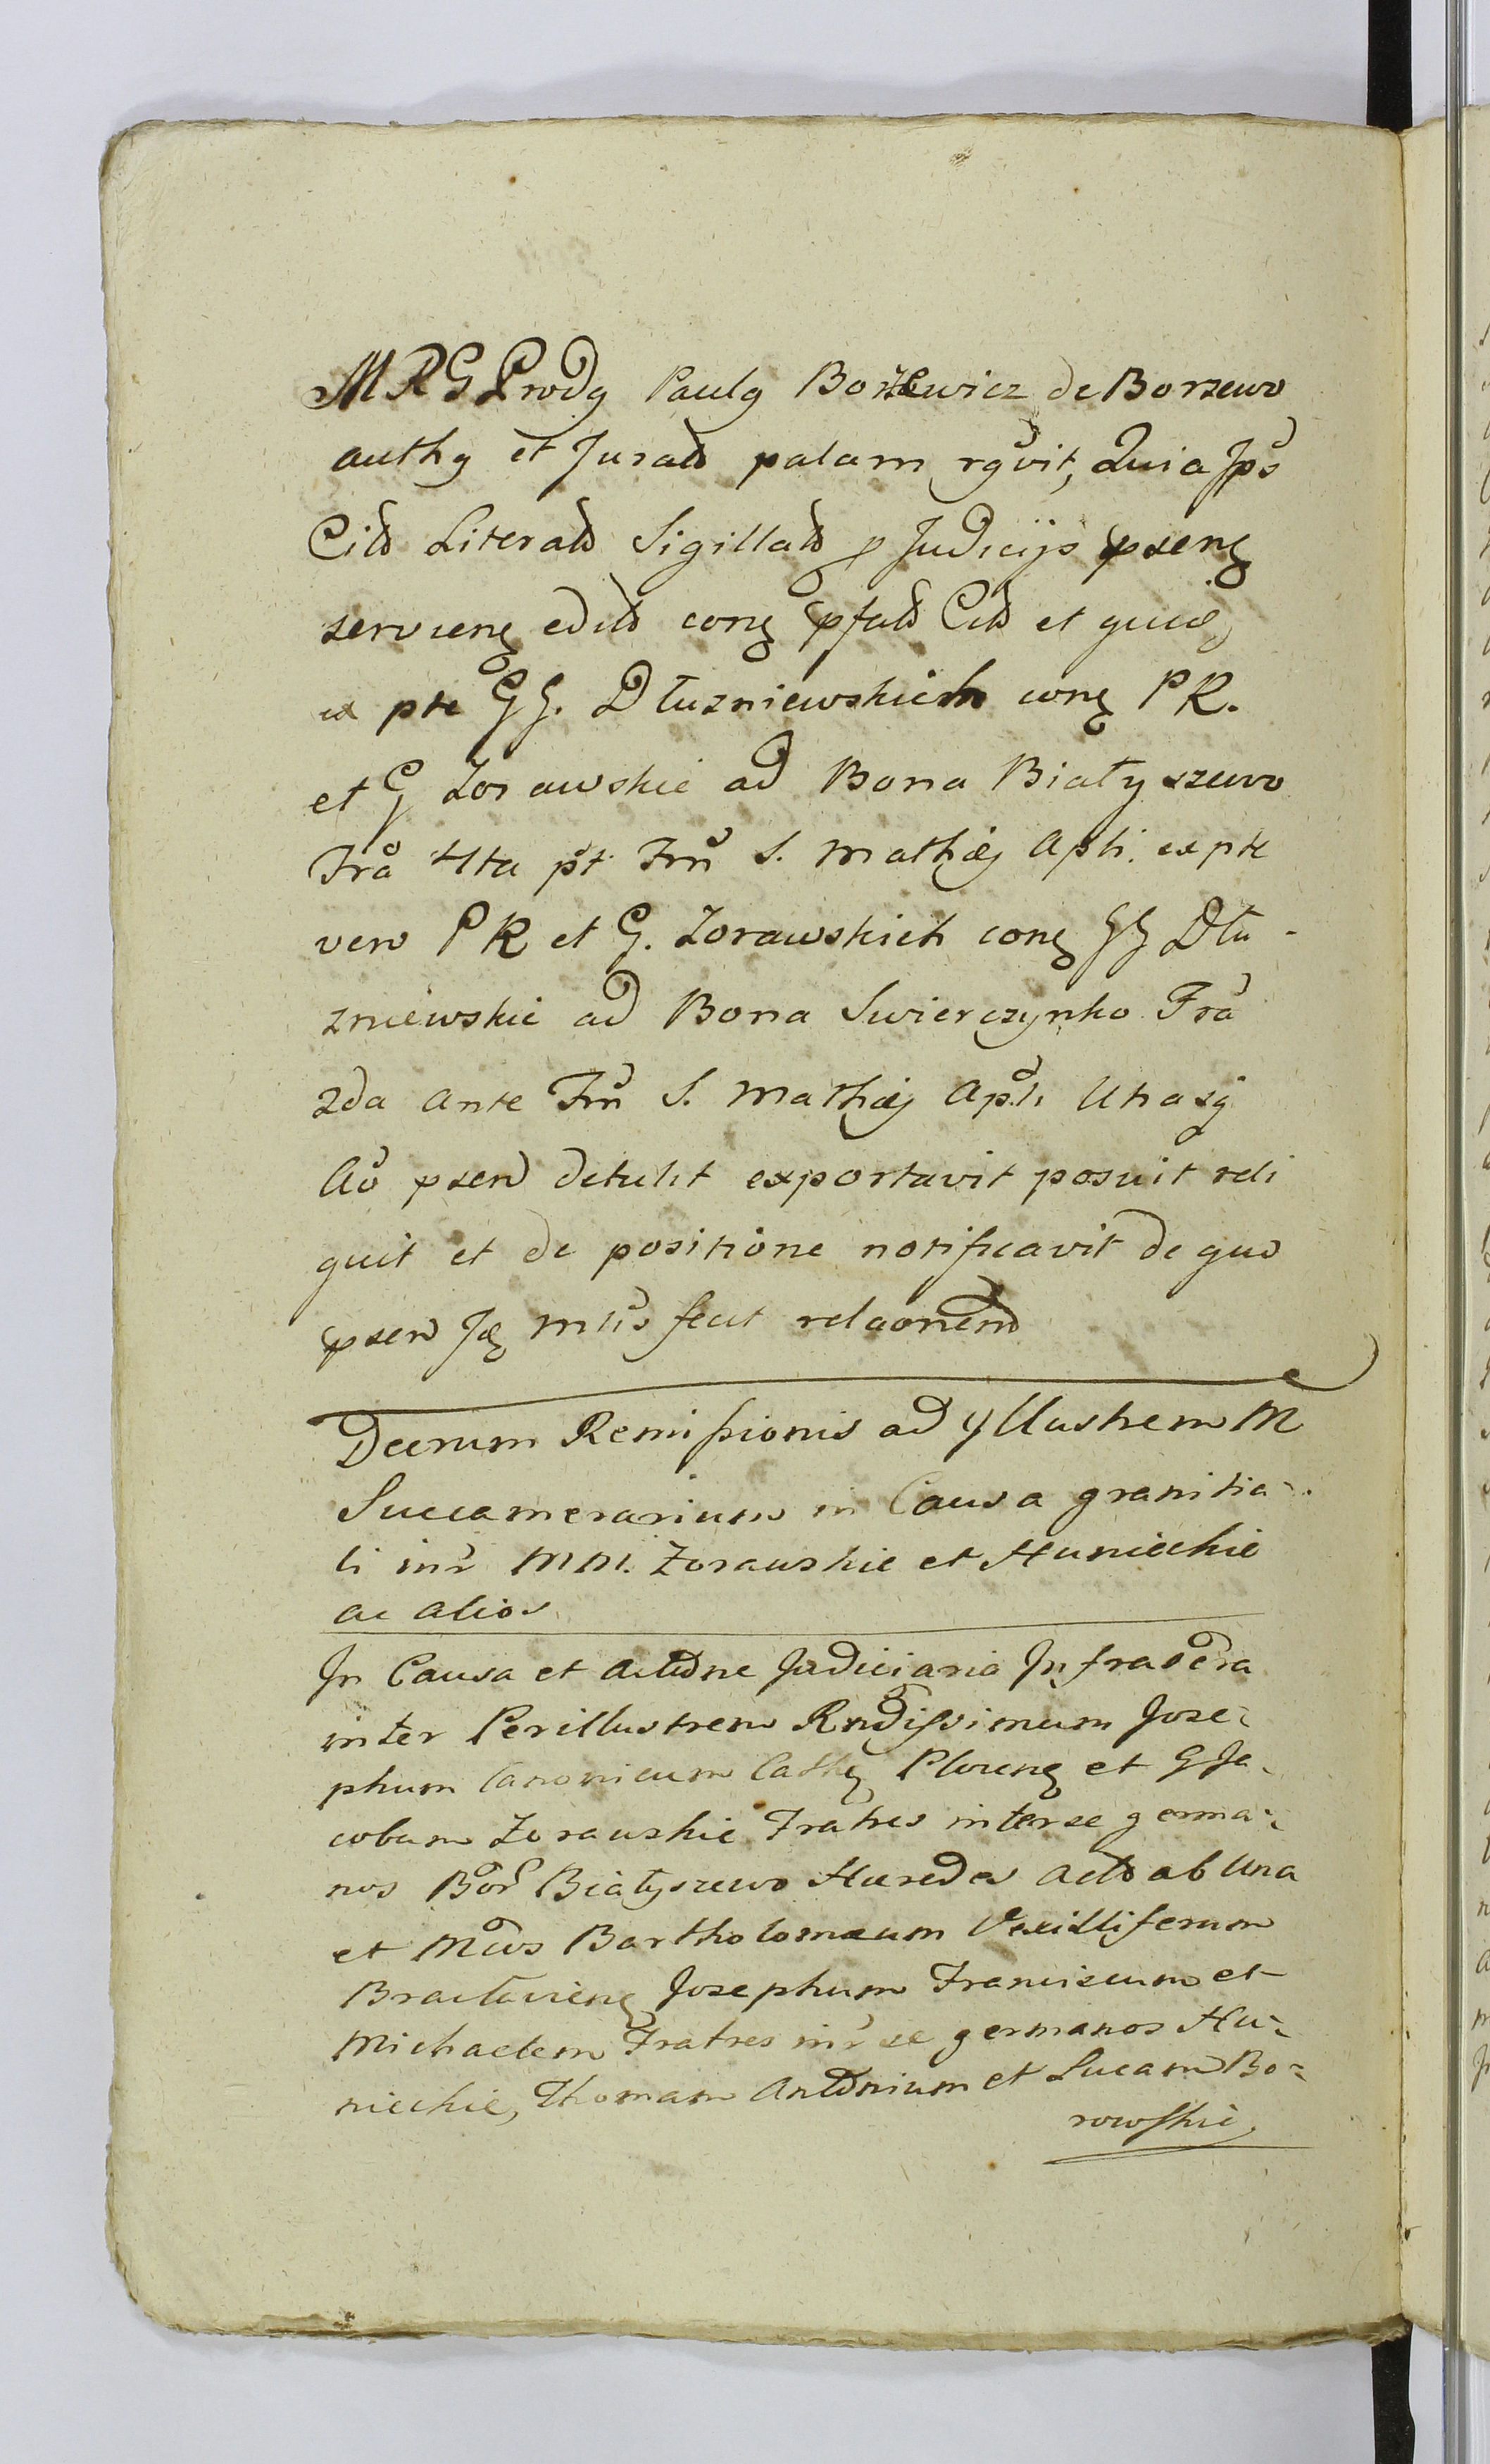 MRG Prodg Paulg Borzewicz de Borzewo
authg et Jurato palam rgvit, Quia Jps
Citõ Literatõ Sigillatõ p Judicijs psenę
servienę editõ conę pfatõ Citõ et quidę
ex pte GG. Dłuzniewskich conę PR.
et G Zorawskie ad Bona Białyszewo
Fra 4ta pt Fm S. Mathiæ Apli. ex pte
vero PR et G. Zorawskich conę GG Dłu-
zniewskie ad Bona Swierczynko Fra
2da ante Fm S. Mathiæ Apli Utrasq
Ao psen detulit exportavit posuit reli
quit et de positione notificavit de quo
psen Ję mlis fecit relaonem
Decrum Remissionis ad Yllustrem M
Succamerarium in Causa granitia-
li inr MM. Zorawskie et Hunieckie
ac alios
In Causa et actione Judiciaria Infrascra
inter Perillustrem Rndissimum Jose-
phum Canonicum Cathę Plocenę et G Ja-
cobum Zorawskie Fratres inter se germa-
nos Bor Białyszewo Hæredes Acto ab Una
et Mcos Bartholomæum Vexilliferum
Braclavienę Josephum Franciscum et
Michaelem Fratres inr se germanos Hu-
nieckie, Thomam Antonium et Lucam Bo-
rowskie,